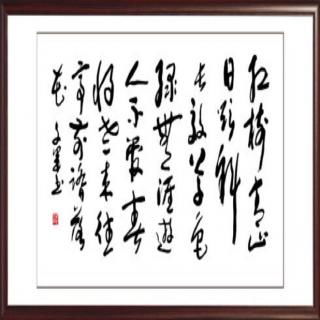 红树青山
日欲斜
长郊草色
绿無涯遊
人不管春
将老来往
亭前踏落
花